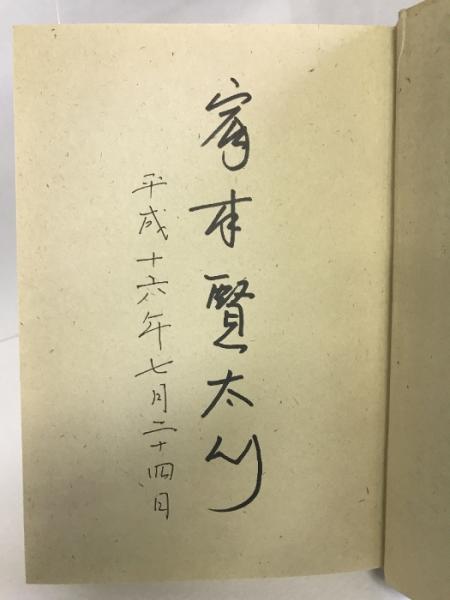 本賢太郎
平成十六年七月二十四日